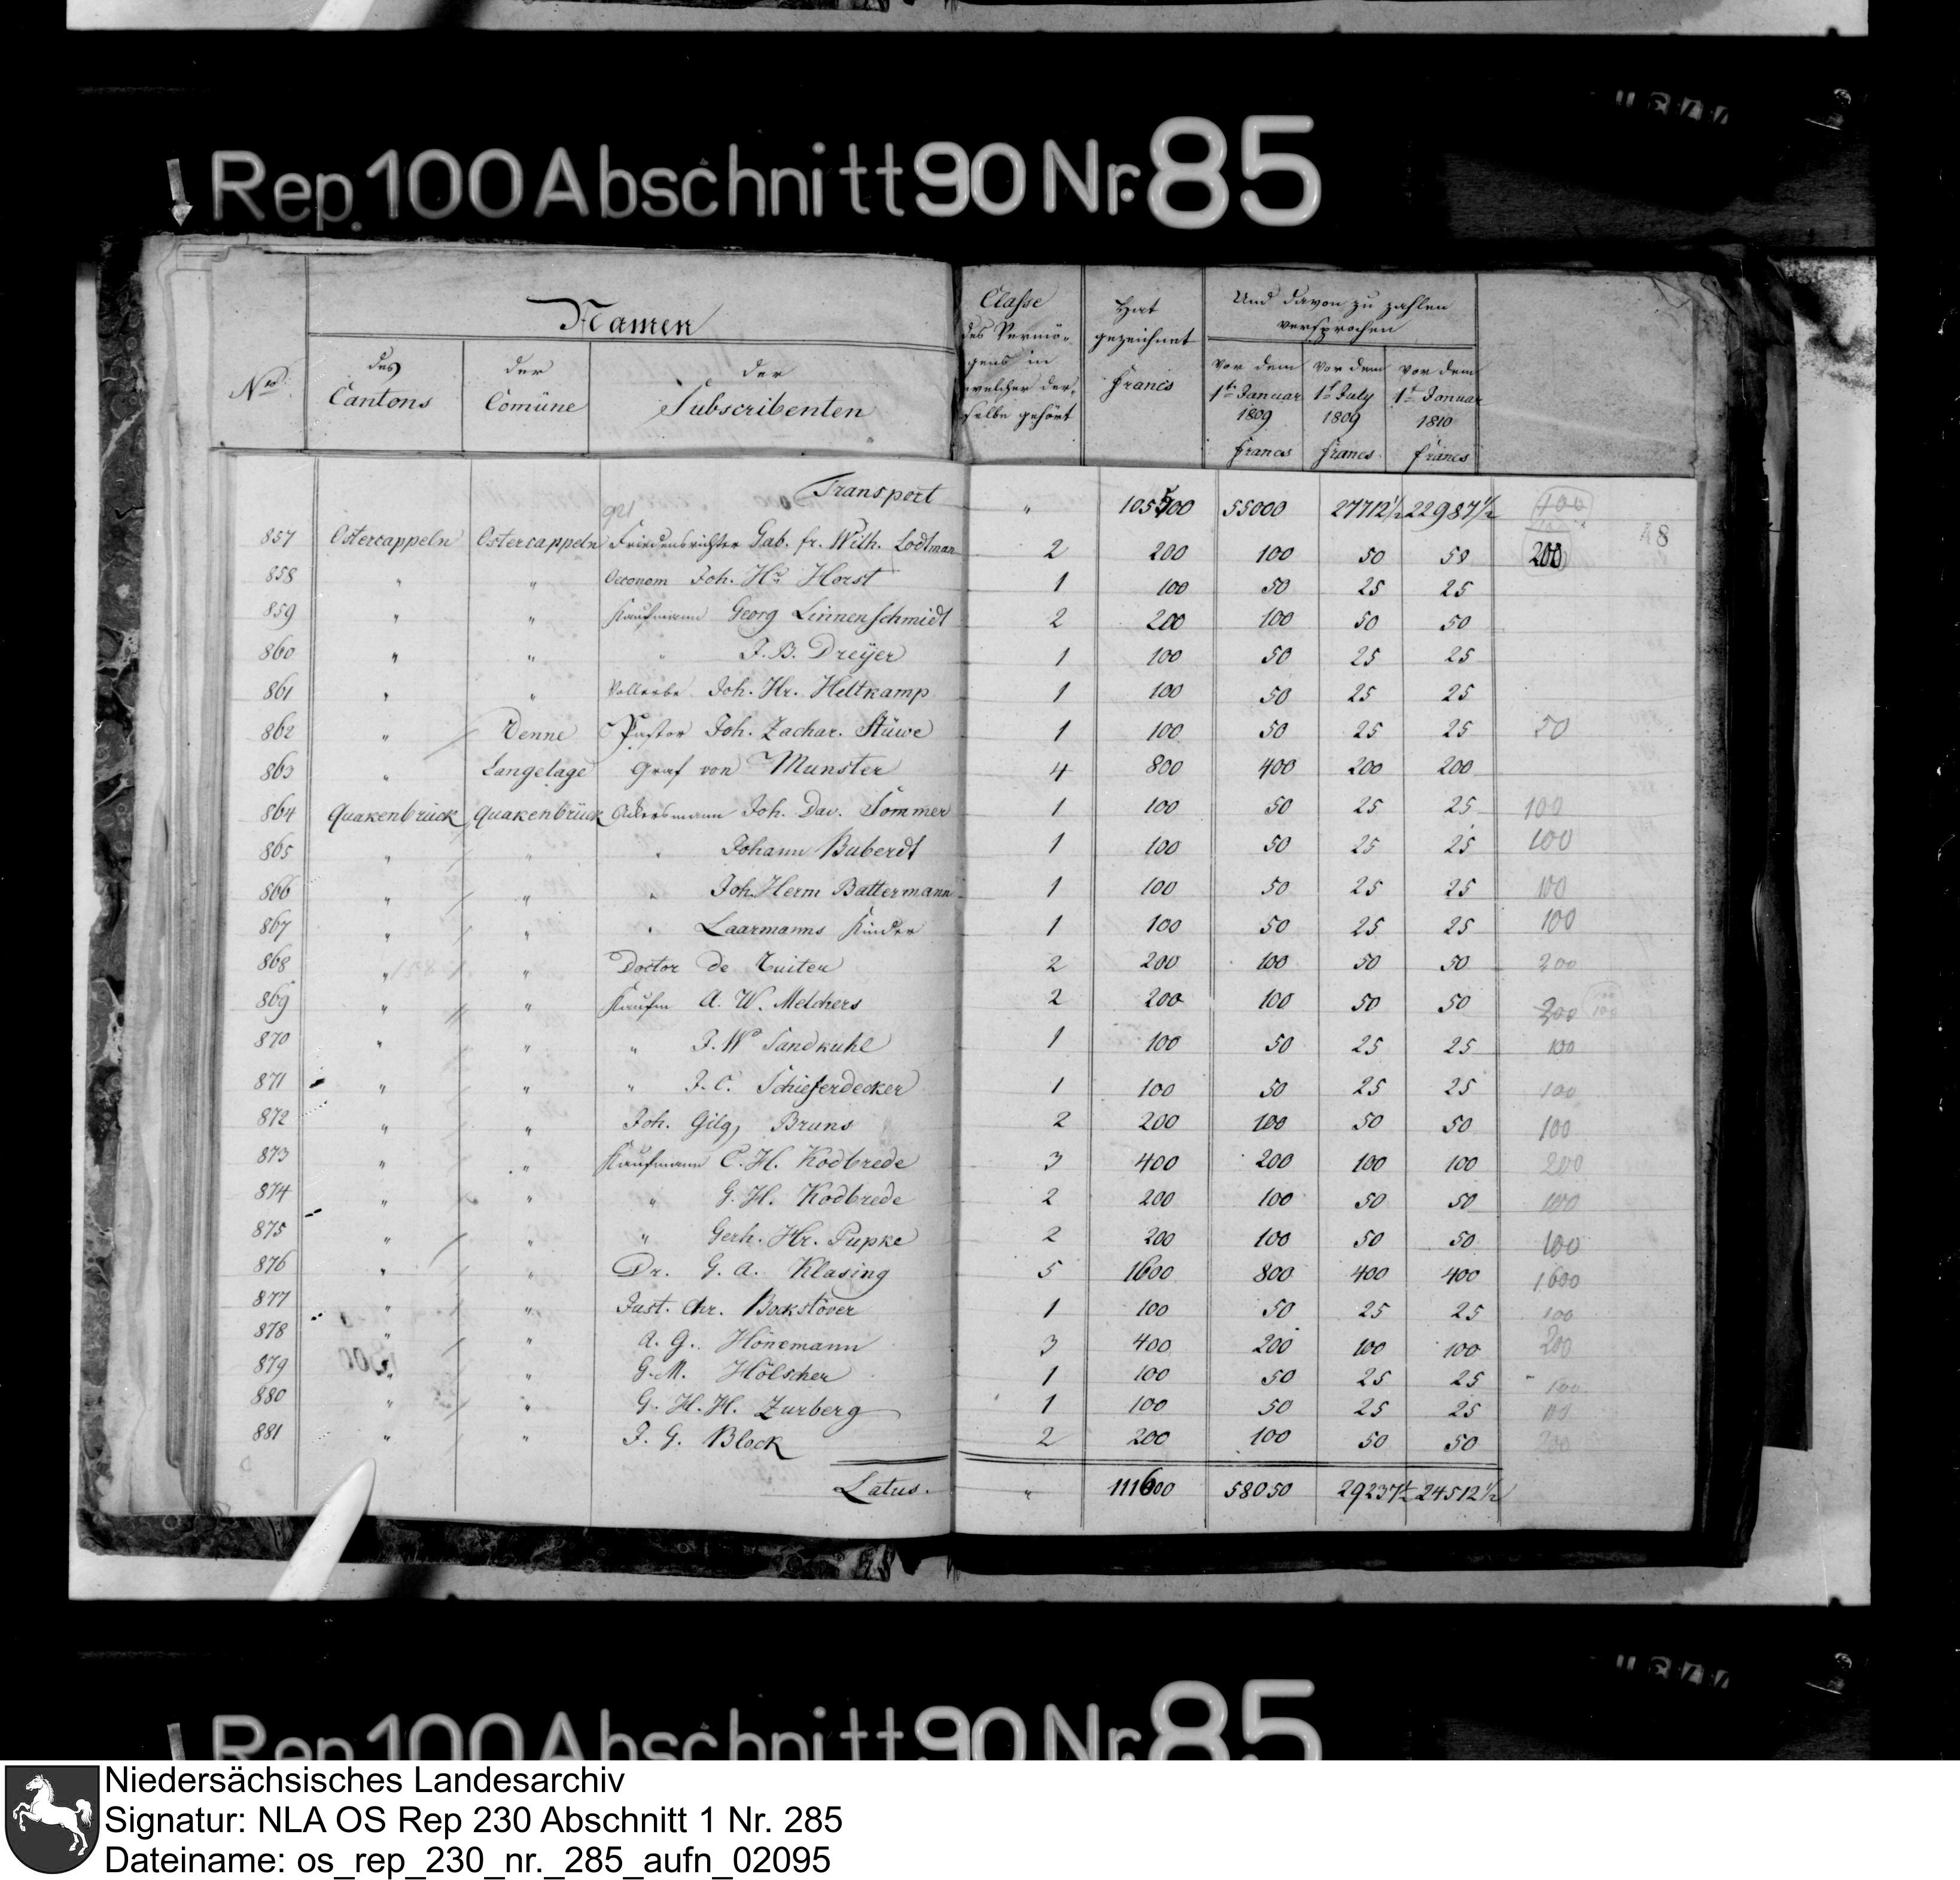 Rep. 100 Abschnitt 90 Nr. 85
Namen
Classe des Vermö-
gens in
welcher der-
selbe gehört
Hat
gezeichnet
Francs
Und davon zu zahlen
versprochen
No.
des
Cantons
der
Comüne
der
Subscribenten
vor dem
1ten Januar
1809
Francs
vor dem
1t July
1809
Francs
vor dem
1t Januar
1810
Francs
Transport " 105500 55000 27712½ 22987½ 100
857 Ostercappeln Ostercappeln Friedensrichter Gab. fr. Wilh. Lodtman 2 200 100 50 50 200 48
858 " " Oeconom Joh. Hr. Horst 1 100 50 25 25
859 " " Kaufmann Georg Linnenschmidt 2 200 100 50 50
860 " " " J. B. Dreÿer 1 100 50 25 25
861 " " Vollerbe Joh. Hr. Heltkamp 1 100 50 25 25
862 " Venne Pastor Joh. Zachar. Stüwe 1 100 50 25 25 50
863 " Langelage Graf von Munster 4 800 400 200 200
864 Quakenbrück Quakenbrück Ackersmann Joh. Dav. Sommer 1 100 50 25 25 100
865 " " " Johann Buberdt 1 100 50 25 25 100
866 " " " Joh. Herm Battermann 1 100 50 25 25 100
867 " " " Laarmanns Kinder 1 100 50 25 25 100
868 " " Doctor de Ruiter 2 200 100 50 50 200
869 " " Kaufm A. W. Melchers 2 200 100 50 50 200 100 100
870 " " " J. W. Sandkuhl 1 100 50 25 25 100
871 " " " J. C. Schieferdecker 1 100 50 25 25 100
872 " " Joh. Gilg, Bruns 2 200 100 50 50 100
873 " " Kaufmann C. H. Kodbrede 3 400 200 100 100 200
874 " " " G. H. Kodbrede 2 200 100 50 50 100
875 " " " Gerh. Hr. Pupke 2 200 100 50 50 100
876 " " Dr. G. A. Klasing 5 1600 800 400 400 1600
877 " " Just. Chr. Bockstöver 1 100 50 25 25 100
878 " " A. G. Hönemann 3 400 200 100 100 200
879 " " G. M. Hölscher 1 100 50 25 25 100
880 " " G. H. H. Zurberg 1 100 50 25 25 100
881 " " J. G. Block 2 200 100 50 50 200
Latus. " 111600 58050 29237½ 24512½
Rep. 100 Abschnitt 90 Nr. 85
Niedersächsisches Landesarchiv
Signatur: NLA OS Rep 230 Abschnitt 1 Nr. 285
Dateiname: os_rep_230_nr._285_aufn_02095